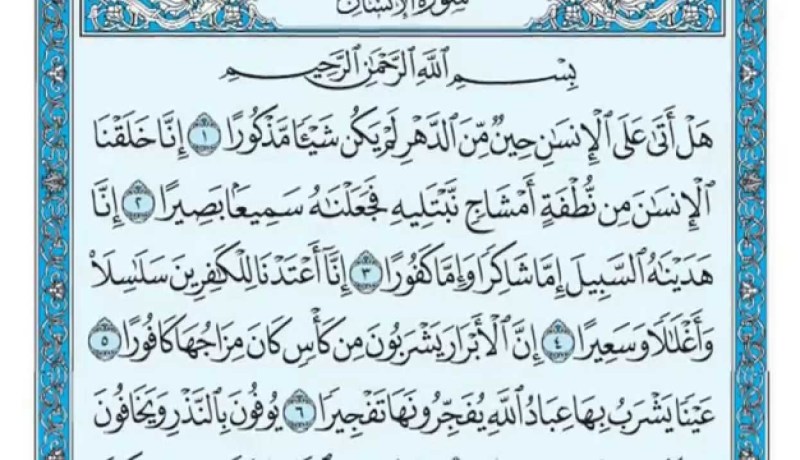 سُورَةُ الإِنسَان
بِسْمِ اللَّهِ الرَّحْمَٰنِ الرَّحِيمِ
هَلْ أَتَىٰ عَلَى الْإِنسَٰنِ حِينٌ مِّنَ الدَّهْرِ لَمْ يَكُن شَيْـًٔا مَّذْكُورًا ١ إِنَّا خَلَقْنَا
الْإِنسَٰنَ مِن نُّطْفَةٍ أَمْشَاجٍ نَّبْتَلِيهِ فَجَعَلْنَٰهُ سَمِيعًۢا بَصِيرًا ٢ إِنَّا
هَدَيْنَٰهُ السَّبِيلَ إِمَّا شَاكِرًا وَإِمَّا كَفُورًا ٣ إِنَّآ أَعْتَدْنَا لِلْكَٰفِرِينَ سَلَٰسِلَا۟
وَأَغْلَٰلًا وَسَعِيرًا ٤ إِنَّ الْأَبْرَارَ يَشْرَبُونَ مِن كَأْسٍ كَانَ مِزَاجُهَا كَافُورًا ٥
عَيْنًا يَشْرَبُ بِهَا عِبَادُ اللَّهِ يُفَجِّرُونَهَا تَفْجِيرًا ٦ يُوفُونَ بِالنَّذْرِ وَيَخَافُونَ